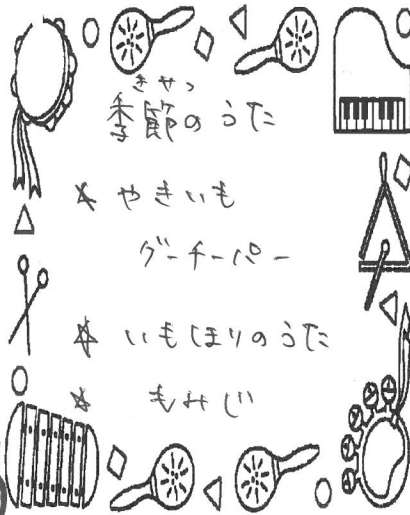 きせつ
季節のうた
☆ やきいも
グーチーパー
☆ いもほりのうた
☆ もみじ